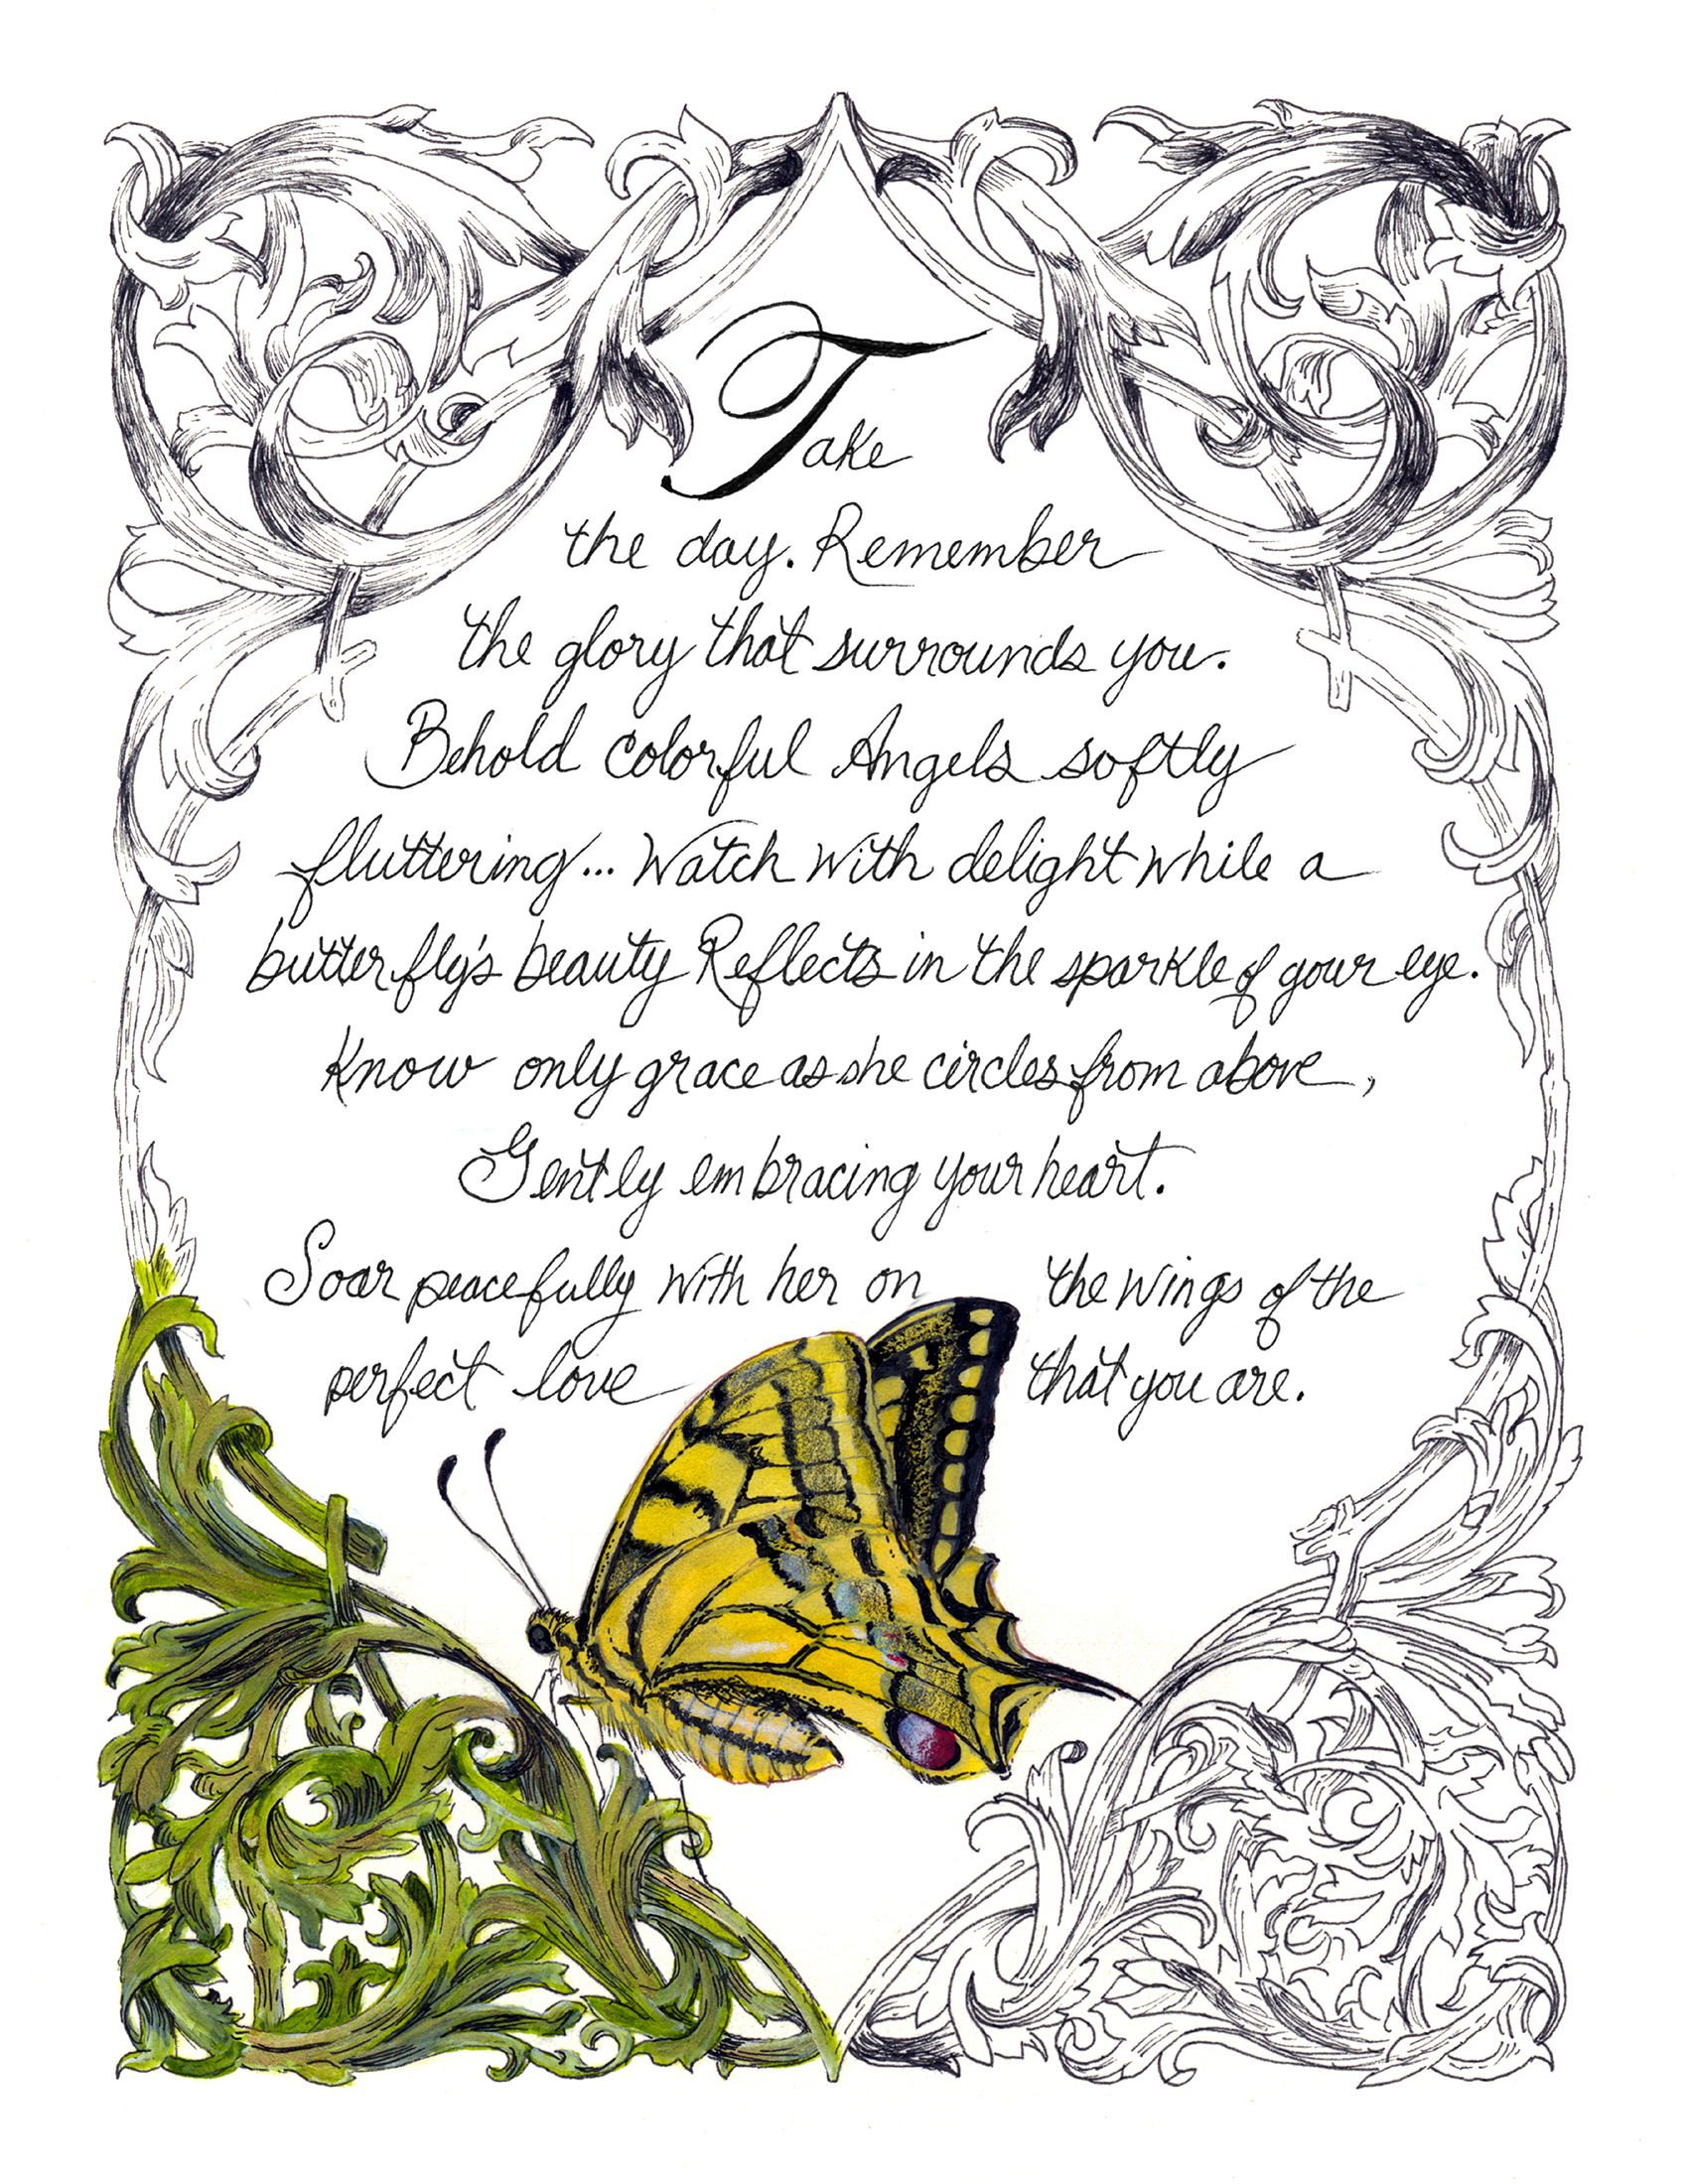 Take
the day. Remember
the glory that surrounds you.
Behold colorful Angels softly
fluttering... Watch with delight while a
butterfly's beauty Reflects in the sparkle of your eye.
Know only grace as she circles from above,
Gently embracing your heart.
Soar peacefully with her on the wings of the
perfect love that you are.